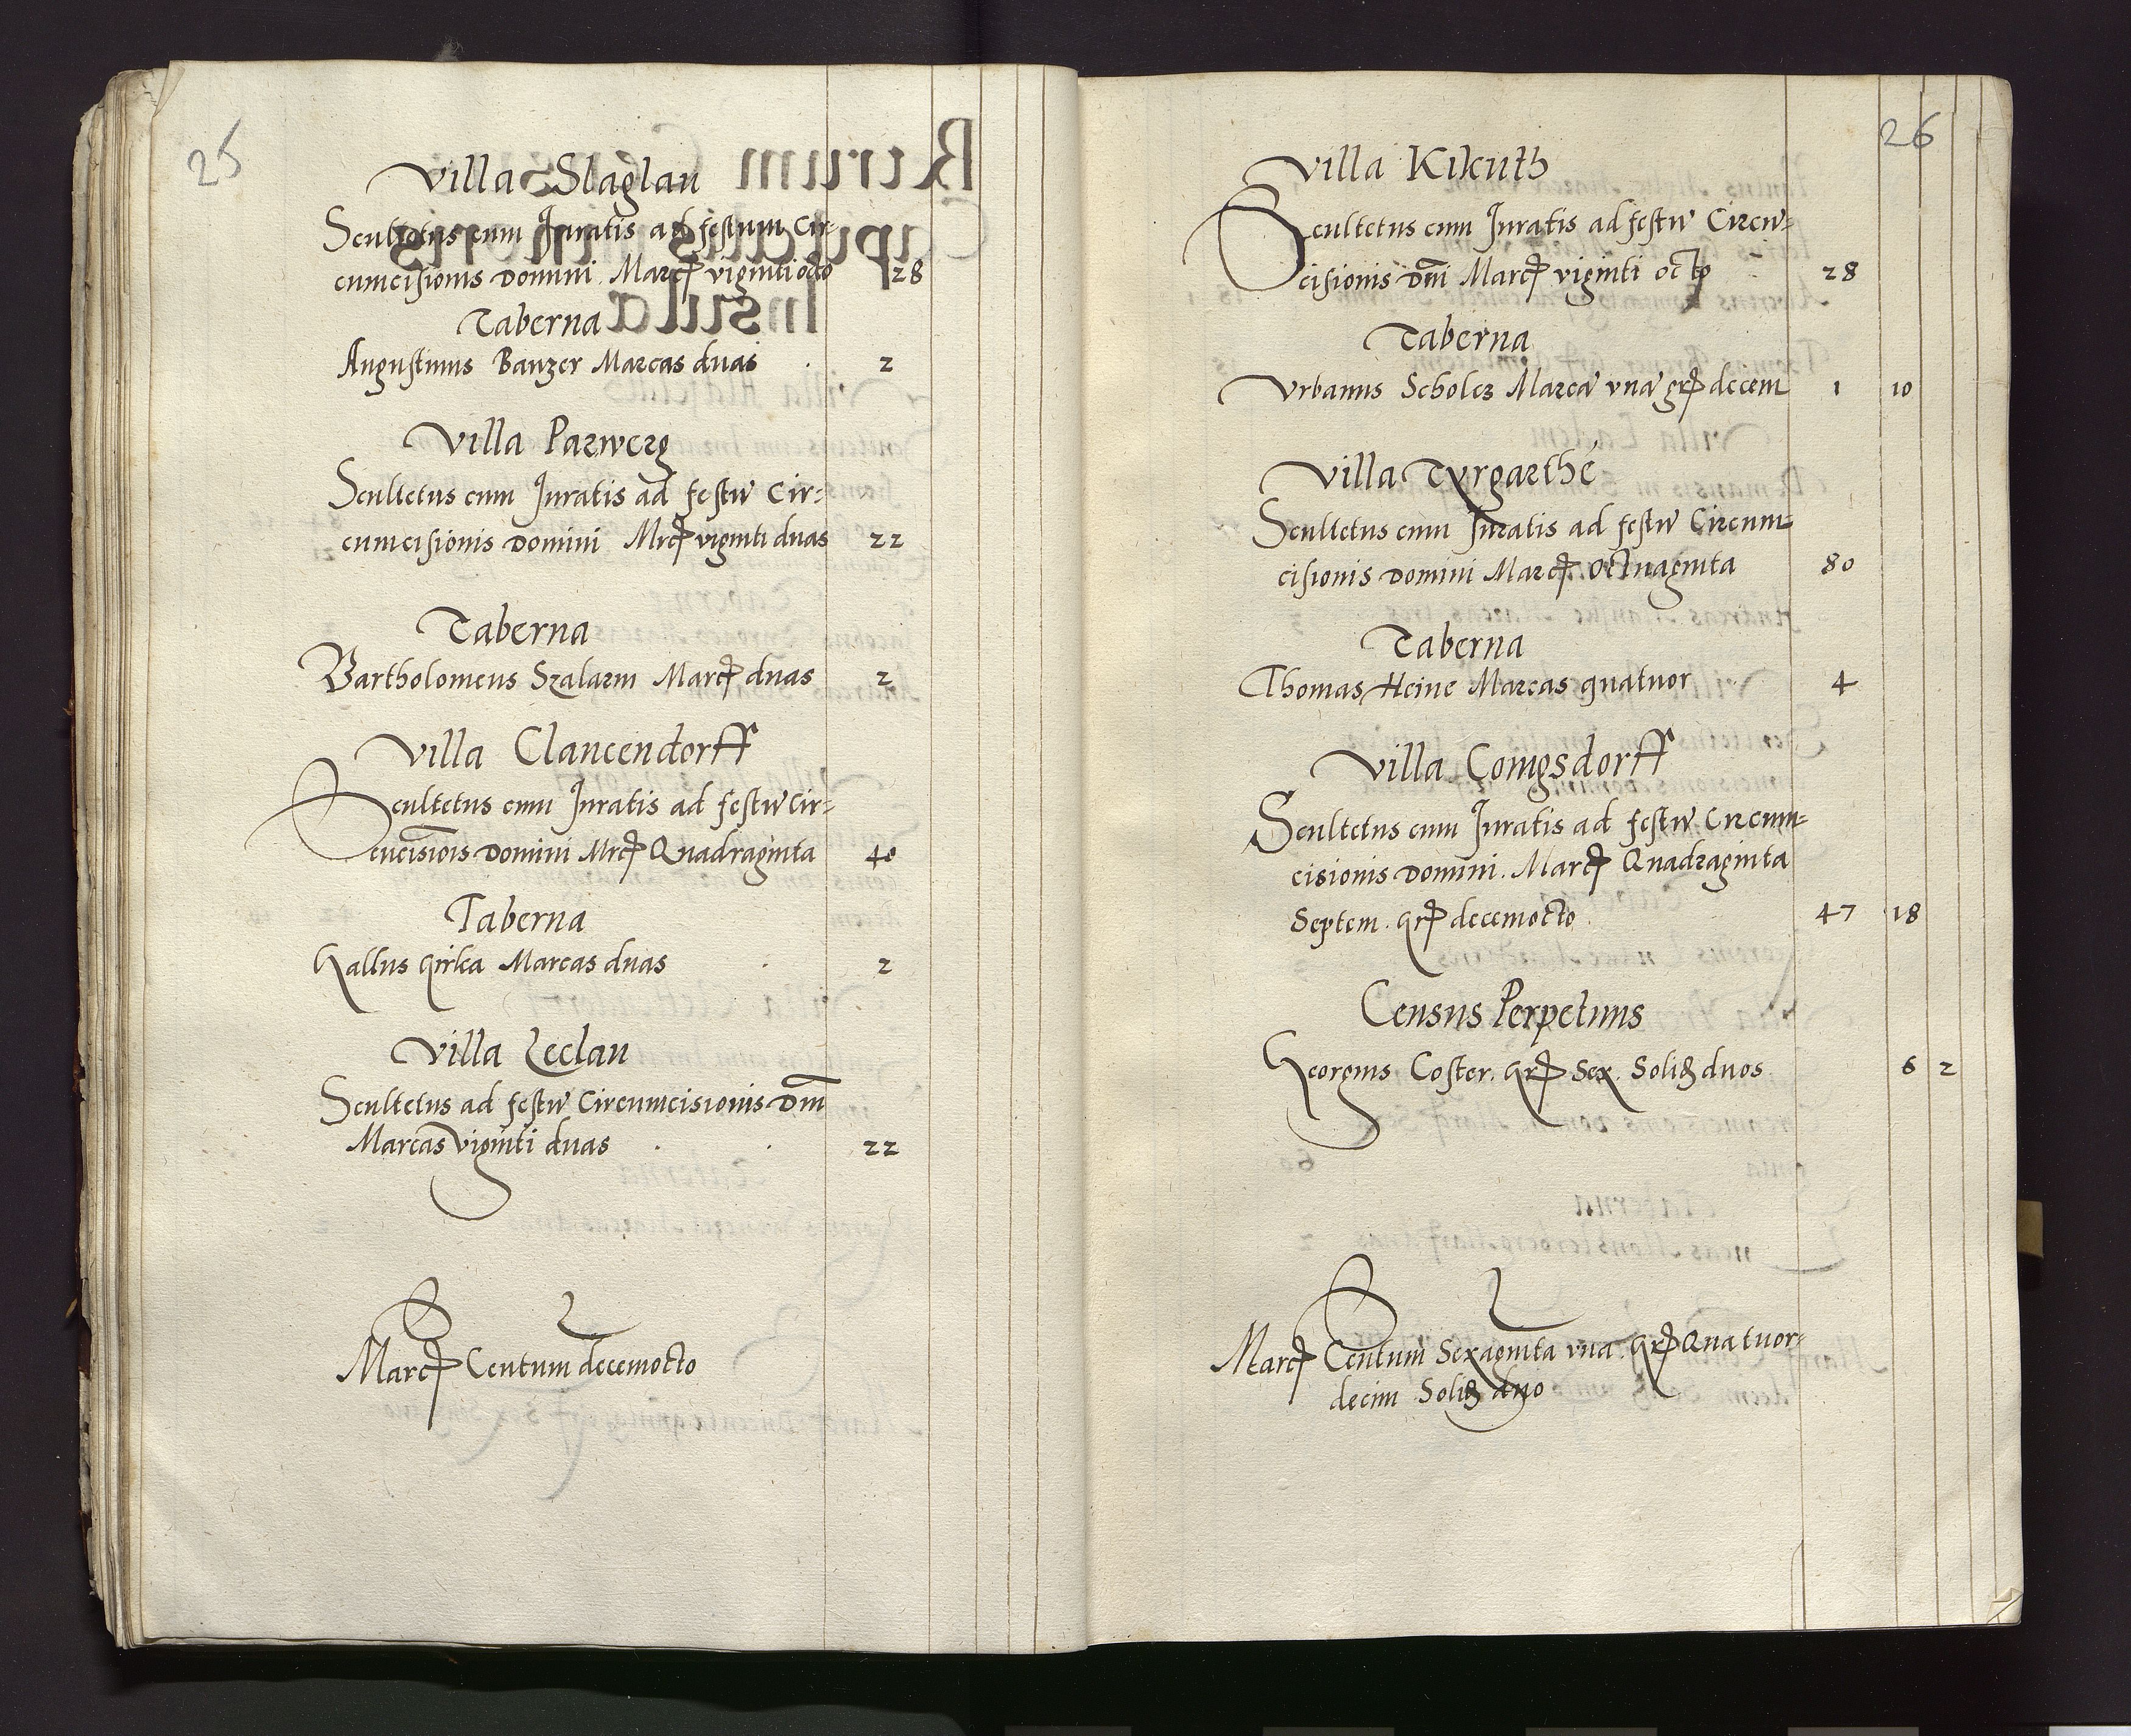 25
Villa Slaglau
Scultetus cum Juratis ad festum Cir-
cumcisionis Domini Marcẹ viginti octo 28
Taberna
Augustinus Banzer Marcas duas 2
Villa Parwerg
Scultetus cum Juratis ad festũ Cir-
cumcisionis Domini Mrcẹ viginti duas 22
Taberna
Bartholomeus Szalarm Marcẹ duas 2
Villa Clancendorff
Scultetus cum Juratis ad festũ Cir-
cũcisiõis Domini Mrcẹ Quadraginta 40
Taberna
Gallus Girka Marcas duas 2
Villa Leclau
Scultetus ad festũ Circumcisionis Dm̃
Marcas Viginti duas 22
Marcẹ Centum decemocto
26
Villa Kikuth
Scultetus cum Juratis ad festũ Circũ-
cisionis Dm̃i Marcẹ viginti octo 28
Taberna
Urbanus Scholcz Marcã vnã grẹ decem 1 10
Villa Tyrgarthe
Scultetus cum Juratis ad festũ Circum-
cisionis Domini Marcẹ Octuaginta 80
Taberna
Thomas Heine Marcas quatuor 4
Villa Conigsdorff
Scultetus cum Juratis ad festũ Circum-
cisionis Domini. Marcẹ Quadraginta
Septem. Grẹ decemocto 47 18
Census Perpetuus
Georgius Coster. Grẹ Sex. Solid duos 6 2
Marcẹ Centum Sexaginta vna. Grẹ Quatuor-
decim Solid duo